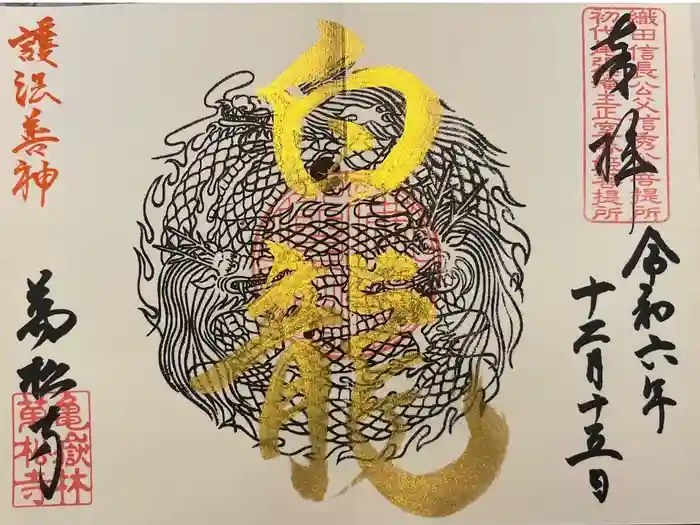 奉拝
織田信長公父信秀公菩提所
初代尾張藩主正室春姫菩提所
令和六年
十二月十五日
白龍
護法善神
萬松寺
亀嶽林
萬松寺